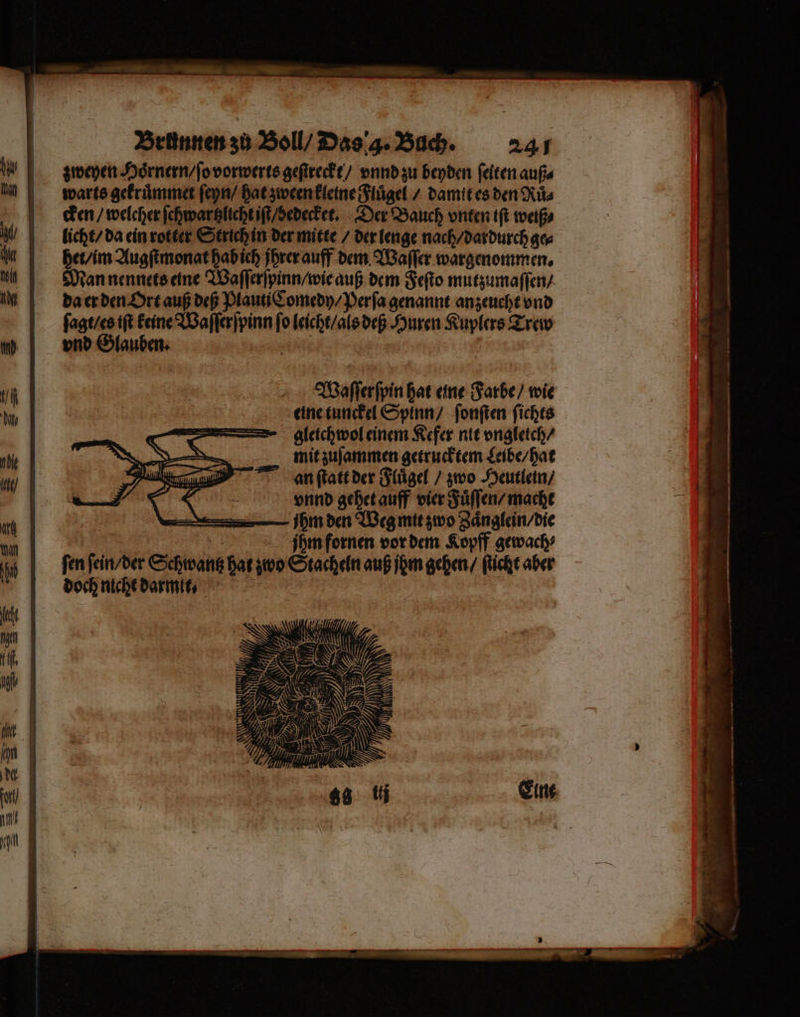 Brunnen zů Boll/ Das 4. Bůch. 241
zweyen Hoͤrnern/ſo vorwerts geſtreckt/ vnnd zu beyden ſeiten auß⸗
warts gekruͤmmet ſeyn/ hat zween kleine Fluͤgel / damit es den Ruͤ⸗
cken / welcher ſchwartzlicht iſt/bedecket. Der Bauch vnten iſt weiß⸗
licht/ da ein rotter Strich in der mitte / der lenge nach/dardurch ge⸗
het/im Augſtmonat hab ich jhrer auff dem Waſſer wargenommen.
Man nennets eine Waſſerſpinn/wie auß dem Feſto mutzumaſſen/
da er den Ort auß deß Plauti Comedy/Perſa genannt anzeucht vnd
ſagt/es iſt keine Waſſerſpinn ſo leicht/als deß Huren Kuplers Trew
vnd Glauben.
Waſſerſpin hat eine Farbe/ wie
eine tunckel Spinn/ ſonſten ſichts
gleichwol einem Kefer nit vngleich/
mit zuſammen getrucktem Leibe/hat
an ſtatt der Fluͤgel / zwo Heutlein/
vnnd gehet auff vier Fuͤſſen/ macht
jhm den Weg mit zwo Zaͤnglein/die
jhm fornen vor dem Kopff gewach⸗
ſen ſein/der Schwantz hat zwo Stacheln auß jhm gehen/ ſticht aber
doch nicht darmit.
gg iij Eine